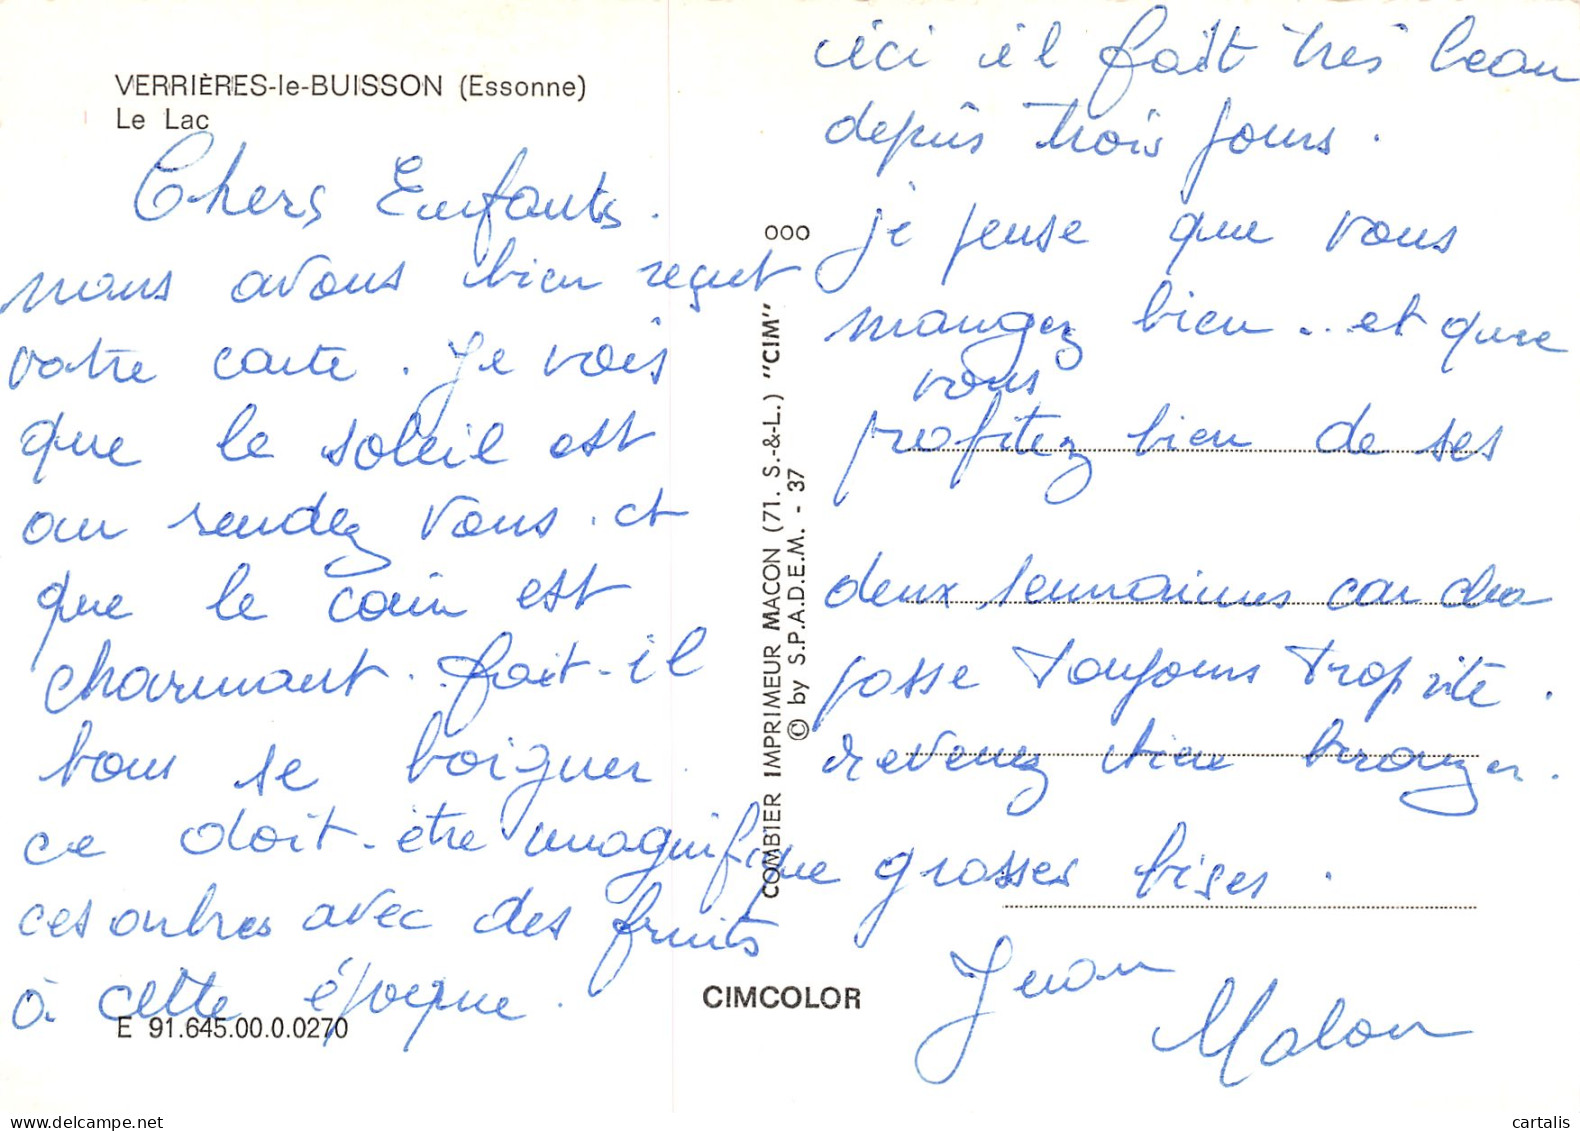 VERRIÈRES-le-BUISSON (Essonne)
Le Lac
Chers Enfants.
nous avons bien reçut
votre carte. Je vois
que le soleil est
au rendez vous. et
que le coin est
charmant. fait-il
bon se boigner.
ce doit-être magnifique
ces arbres avec des fruits
à cette époque.
E 91.645.00.0.0270
COMBIER IMPRIMEUR MACON (71. S.-&-L.) "CIM"
© by S.P.A.D.E.M. - 37
000
CIMCOLOR
ici il fait très beau
depuis trois jours.
je pense que vous
mangez bien.. et que
vous
profitez bien de ses
deux semaines car cela
passe toujours trop vite.
revenez bien bronzer.
grosses bises.